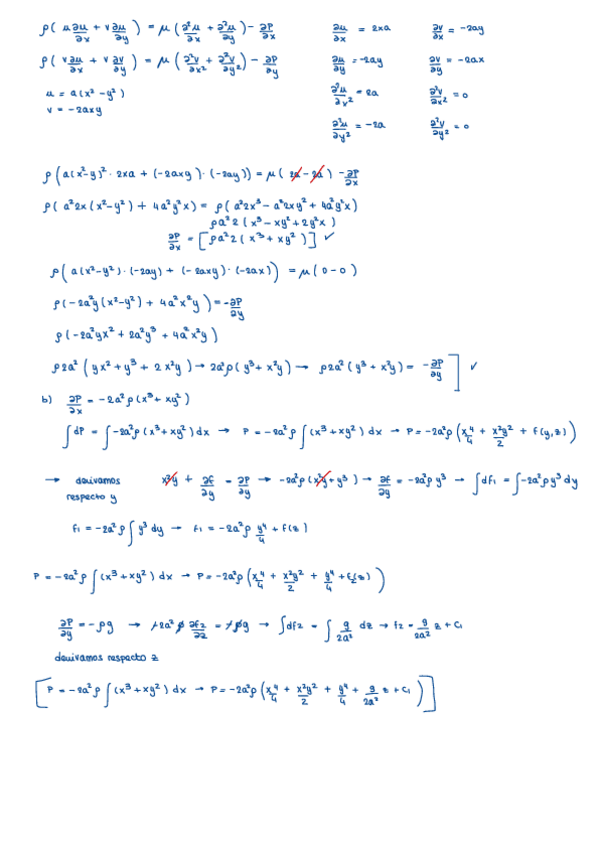 ρ( u ∂u/∂x + v ∂u/∂y ) = μ ( ∂²u/∂x + ∂²u/∂y ) - ∂P/∂x    ∂u/∂x = 2xa    ∂v/∂x = -2ay
ρ( v ∂u/∂x + v ∂v/∂y ) = μ ( ∂²v/∂x² + ∂²v/∂y² ) - ∂P/∂y    ∂u/∂y = -2ay    ∂v/∂y = -2ax
u = a(x² - y²)    ∂²u/∂x² = 2a    ∂²v/∂x² = 0
v = -2axy
∂²u/∂y² = -2a    ∂²v/∂y² = 0
ρ( a(x²-y)² · 2xa + (-2axy) · (-2ay)) = μ( 2a - 2a ) - ∂P/∂x
ρ( a²2x (x²-y²) + 4a²y²x) = ρ( a²2x³ - a²2xy² + 4a²y²x)
ρa²2 ( x³ - xy² + 2y²x )
∂P/∂x = [ ρa²2 ( x³ + xy² ) ] ✓
ρ( a(x²-y²) · (-2ay) + (-2axy) · (-2ax)) = μ ( 0 - 0 )
ρ(-2a²y (x²-y²) + 4a²x²y ) = -∂P/∂y
ρ(-2a²yx² + 2a²y³ + 4a²x²y )
ρ2a² ( yx² + y³ + 2x²y ) → 2a²ρ ( y³ + x²y ) → ρ2a² ( y³ + x²y ) = -∂P/∂y ] ✓
b) ∂P/∂x = -2a²ρ (x³ + xy²)
∫dP = ∫-2a²ρ (x³ + xy²) dx → P = -2a²ρ ∫(x³ + xy²) dx → P = -2a²ρ ( x⁴/4 + x²y²/2 + f(y,z) )
→ derivamos    x²y + ∂f/∂y = ∂P/∂y → -2a²ρ (x²y + y³) → ∂f/∂y = -2a²ρ y³ → ∫df₁ = ∫-2a²ρ y³ dy
respecto y
f₁ = -2a²ρ ∫ y³ dy → f₁ = -2a²ρ y⁴/4 + f(z)
P = -2a²ρ ∫ (x³ + xy²) dx → P = -2a²ρ ( x⁴/4 + x²y²/2 + y⁴/4 + f₂(z) )
∂P/∂y = -ρg → -2a²ρ ∂f₂/∂z = -ρg → ∫df₂ = ∫ g/2a² dz → f₂ = g/2a² z + C₁
derivamos respecto z
[ P = -2a²ρ ∫ (x³ + xy²) dx → P = -2a²ρ ( x⁴/4 + x²y²/2 + y⁴/4 + g/2a² z + C₁ ) ]